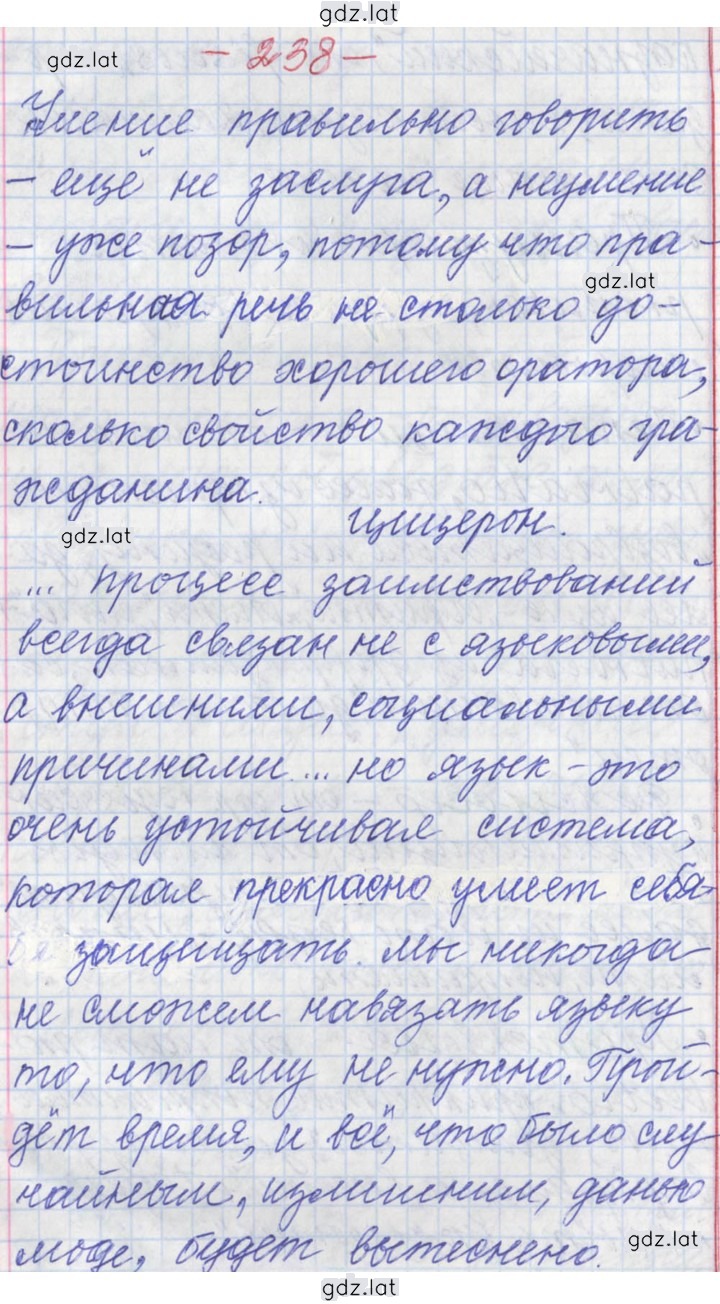 gdz.lat
gdz.lat
- 238 -
Умение правильно говорить
- ещё не заслуга, а неумение
- уже позор, потому что пра-
gdz.lat
вильная речь не столько до-
стоинство хорошего оратора,
сколько свойство каждого гра-
жданина.
Цицерон.
gdz.lat
... процесс заимствований
всегда связан не с языковыми,
а внешними, социальными
причинами... но язык - это
очень устойчивая система,
которая прекрасно умеет себя
защищать. Мы никогда
не сможем навязать языку
то, что ему не нужно. Прой-
дёт время, и всё, что было слу
чайным, излишним, данью
моде, будет вытеснено.
gdz.lat
gdz.lat